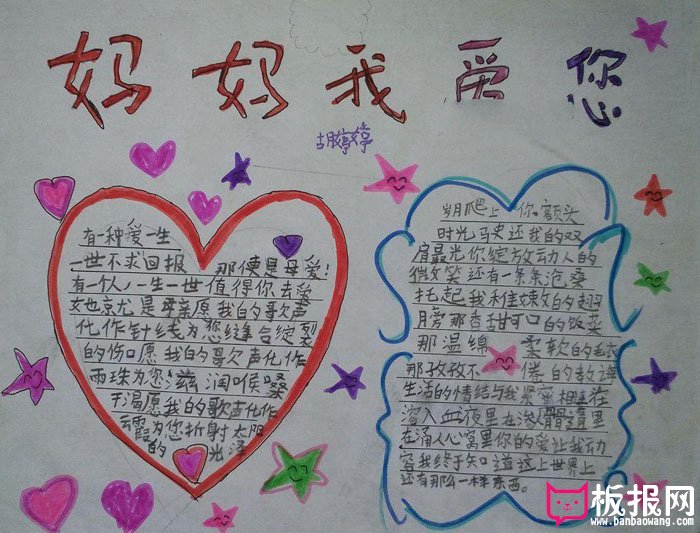 妈妈我爱您
胡婷婷
有一种爱一生
一世不求回报 那便是母爱!
有一个人,一生一世值得你去爱
她就是母亲愿我的歌声
化作针线为您缝合绽裂
的伤口愿我的歌声化作
雨珠为您滋润喉嗓
干渴愿我的歌声化作
云霞为您折射太阳
的 光泽
岁月爬上 你额头
时光 还我的双
肩最光你绽放动人的
微笑还有一条条
托起我 的翅
膀那香甜可口的饭菜
那温绵 柔软的毛衣
那孜孜不 倦的教诲
生活的情结与我紧密相连在
溶入血液里在 里
在涌人心窝里你的爱让我动
容我终于知道这上世界上
还有那么一种东西。
板报网
www.banbaowang.com